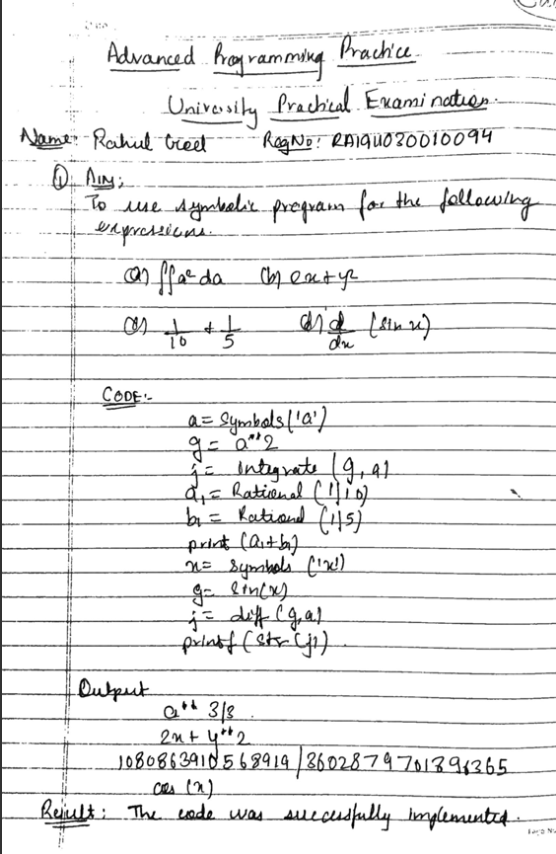 Advanced Programming Practice
University Practical Examination.
Name: Rahul Goel RegNo: RA1911030010094
① AIM:
To use symbolic program for the following
expressions.
(a) ∫∫a² da (b) 2x+y²
(c) 1/10 + 1/5 (d) d/dx (sin x)
CODE:-
a = Symbols('a')
g = a**2
j = integrate (g, a)
a₁ = Rational (1/10)
b₁ = Rational (1/5)
print (a₁+b₁)
x = symbols ('x')
g = sin(x)
j = diff (g,a)
printf (str(j))
Output
a** 3/3
2x + y**2
10808639105689 19/36028797018963 65
cos (x)
Result: The code was successfully implemented.